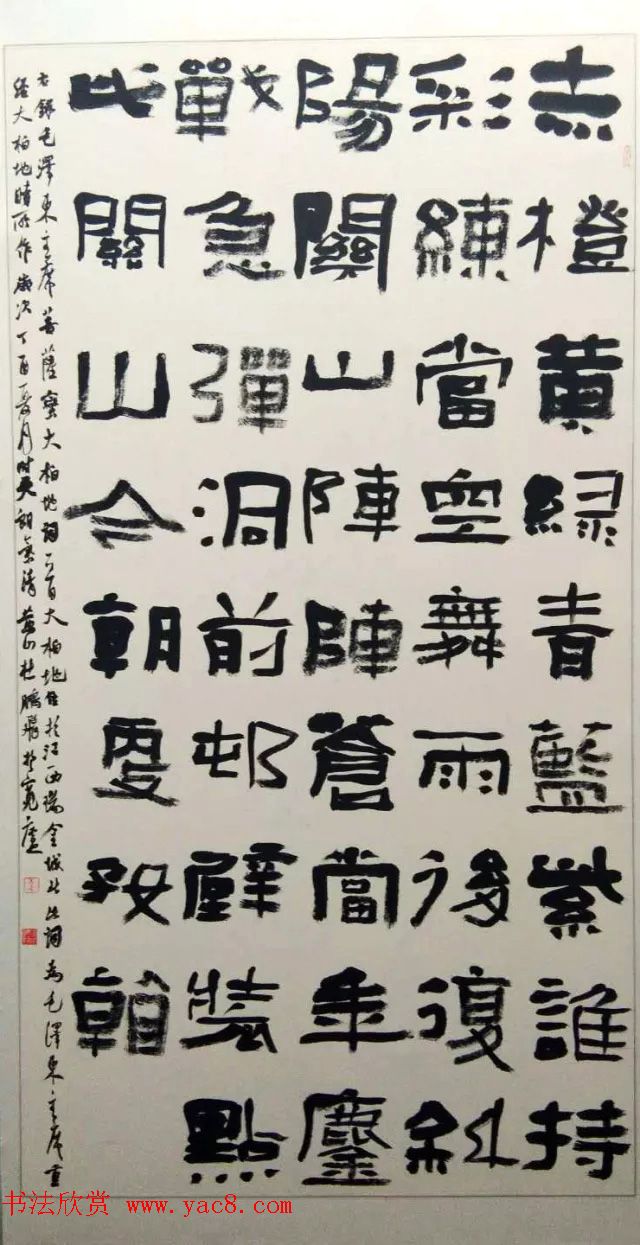 赤橙黄緑青藍紫誰持
彩練當空舞雨後復斜
陽關山陣陣蒼當年鏖
戰急彈洞前邨壁裝點
此關山今朝更好看
右錄毛澤東主席菩薩蠻大柏地詞一首大柏地位於江西瑞金城北此詞為毛澤東主席重
經大柏地時所作歲次丁酉夏月時天朗氣清黄山杜鵬飛於寬廬
书法欣赏 www.yac8.com